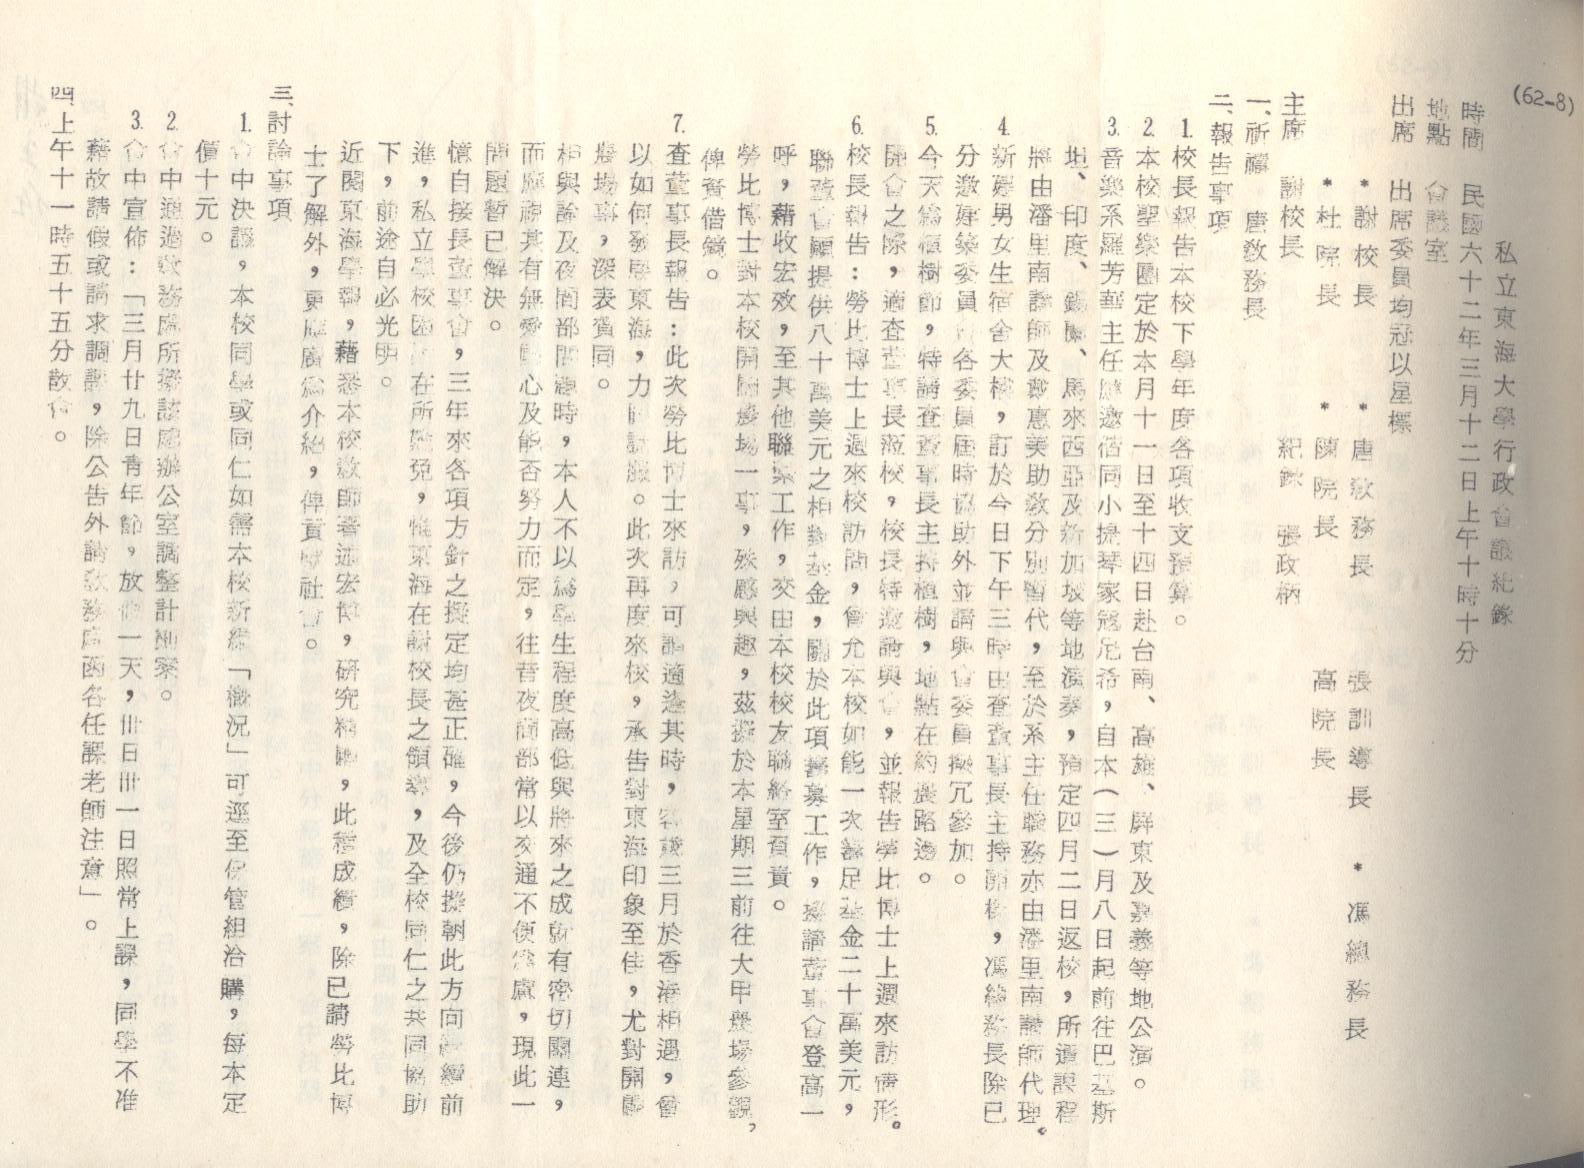 (62-8)
私立東海大學行政會議紀錄
時間 民國六十二年三月十二日上午十時十分
地點 會議室
出席 出席委員均冠以星標
*謝校長 *唐教務長 *張訓導長 *馮總務長
*杜院長 *陳院長 高院長
主席 謝校長 紀錄 張政柄
一、祈禱 唐教務長
二、報告事項
1. 校長報告本校下學年度各項收支預算。
2. 本校聖樂團定於本月十一日至十四日赴台南、高雄、屏東及嘉義等地公演。
3. 音樂系羅芳華主任應邀偕同小提琴家寇尼希,自本(三)月八日起前往巴基斯
坦、印度、錫蘭、馬來西亞及新加坡等地演奏,預定四月二日返校,所遺課程
將由潘里南講師及鄭惠美助教分別暫代,至於系主任職務亦由潘里南講師代理。
4. 新建男女生宿舍大樓,訂於今日下午三時由查董事長主持開標,馮總務長除已
分邀建築委員會各委員屆時協助外並請與會委員撥冗參加。
5. 今天為植樹節,特請查董事長主持植樹,地點在約農路邊。
開會之際,適查董事長蒞校,校長特邀請與會,並報告勞比博士上週來訪情形。
6. 校長報告:勞比博士上週來校訪問,曾允本校如能一次籌足基金二十萬美元,
聯董會願提供八十萬美元之相對基金,關於此項籌募工作,擬請董事會登高一
呼,藉收宏效,至其他聯繫工作,交由本校校友聯絡室負責。
勞比博士對本校開闢農場一事,殊感興趣,茲擬於本星期三前往大甲農場參觀,
俾資借鏡。
7. 查董事長報告:此次勞比博士來訪,可謂適逢其時,客歲三月於香港相遇,曾
以如何發展東海,力向說服。此次再度來校,承告對東海印象至佳,尤對開闢
農場事,深表贊同。
相與論及夜間部問題時,本人不以為學生程度高低與將來之成就有密切關連,
而應視其有無愛國心及能否努力而定,往昔夜間部常以交通不便為慮,現此一
問題暫已解決。
憶自接長董事會,三年來各項方針之擬定均甚正確,今後仍擬朝此方向繼續前
進,私立學校困難在所難免,惟東海在謝校長之領導,及全校同仁之共同協助
下,前途自必光明。
近閱東海學報,藉悉本校教師著述宏博,研究精闢,此種成績,除已請勞比博
士了解外,更應廣為介紹,俾貢獻社會。
三、討論事項
1. 會中決議,本校同學或同仁如需本校新編「概況」可逕至保管組洽購,每本定
價十元。
2. 會中通過教務處所擬該處辦公室調整計劃案。
3. 會中宣佈:「三月廿九日青年節,放假一天,卅日卅一日照常上課,同學不准
藉故請假或請求調課,除公告外請教務處函各任課老師注意」。
四、上午十一時五十五分散會。